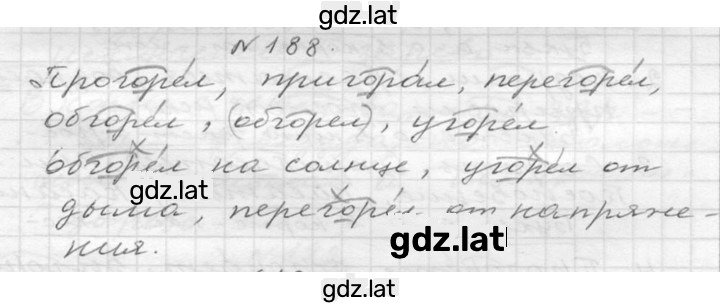 gdz.lat
N 188.
Прогорел, пригорал, перегорел,
обгорел, (обгорел), угорел.
Обгорел на солнце, угорел от
gdz.lat
дыма, перегорел от напряже-
gdz.lat
ния.
gdz.lat